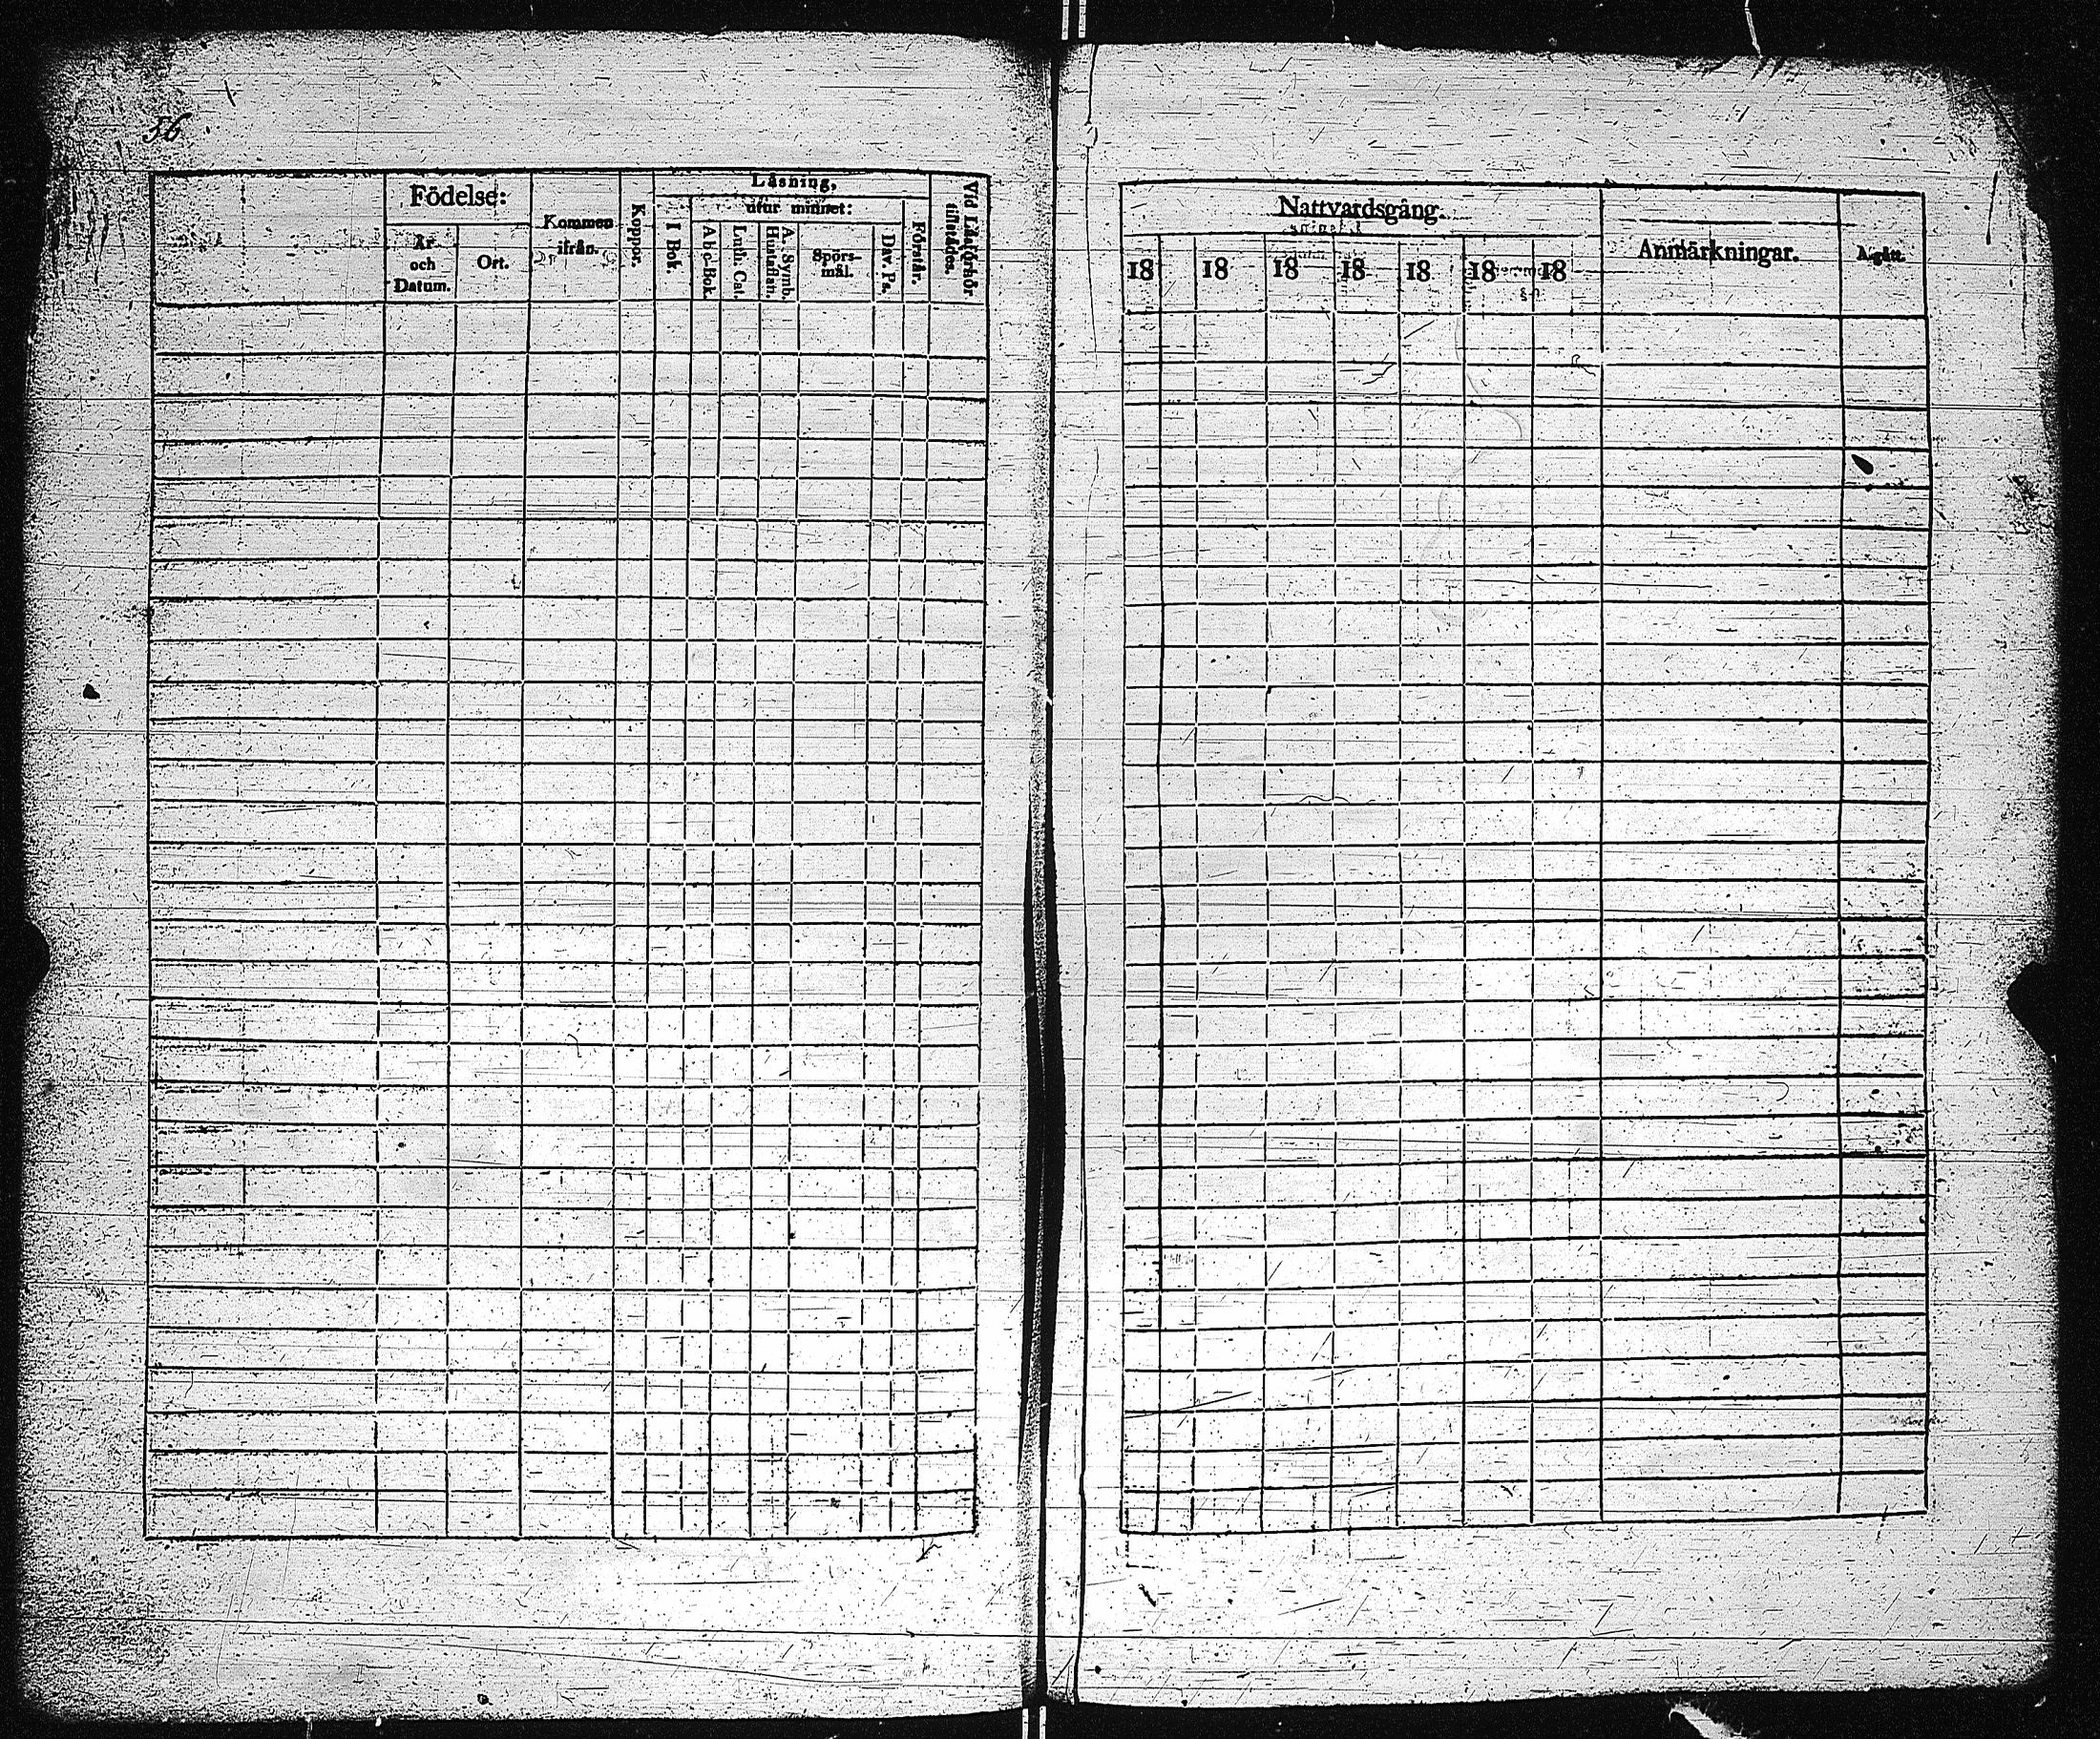 56
Födelse:
År och Datum.
Ort.
Kommen ifrån.
Koppor.
Läsning,
I Bok.
utur minnet:
A b c-Bok.
Luth. Cat.
A. Symb. Hustafln.
Spörs-mål.
Dav. Ps.
Förstår.
Vid Läsförhör tillstädes.
Nattvardsgång.
18 18 18 18 18 18 18
Anmärkningar.
Afgått.